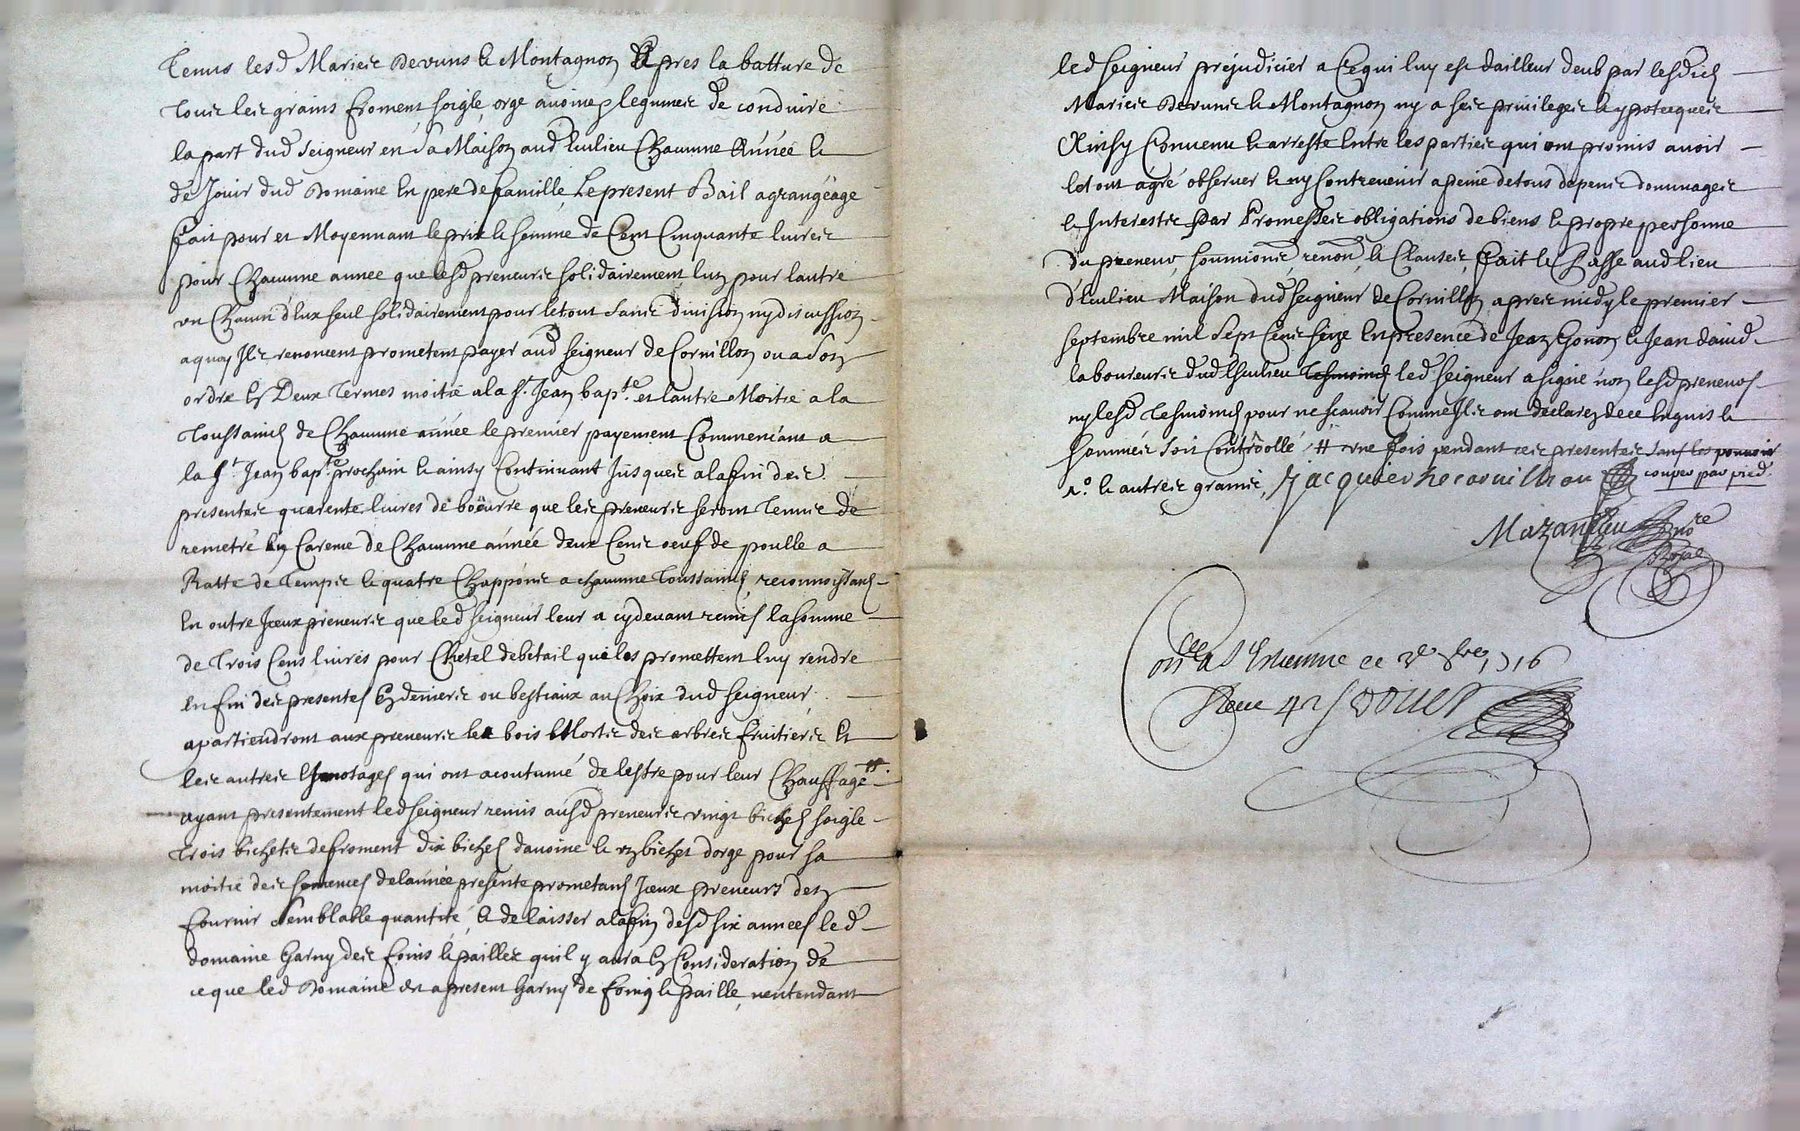 Tenus lesd Maries Devuns & Montagnon Apres la batture de
Tous les grains froment soigle, orge avoine & legumes de conduire
la part dud seigneur en Sa Maison aud Chaunne Année &
de Jouir dud Domaine En pere de famille, Le present Bail a grangéage
fait pour et Moyennant le prix & somme de Cent Cinquante livres
pour Chaunne annee que lesd preneurs solidairement lun pour lautre
un Chacun d'Eux seul solidairement pour le tout sans division ny discussion
a quoy Ils renoncent prometent payer aud seigneur de Cornillon ou a Son
ordre En Deux Termes moitié a la st. Jean bapte et lautre Moitie a la
Toussainct de Chaunne année le premier payement Commencant a
la st Jean bapte prochain & ainsy Continuant Jusques a la fin des
presentes quarente livres de beurre que les preneurs seront Tenus de
remetre En Careme de Chaunne année deux Cens oeuf de poulle a
Ratte de Temps & quatre Chappons a chaunne Toussainct, reconnoissans
En outre Iceux preneurs que led seigneur leur a cy devant remis la somme
de Trois Cens livres pour Chetel de betail quils promettent luy rendre
en fin des presentes En deniers ou bestiaux au Choix dud seigneur,
apartiendront aux preneurs les bois Morts des arbres fruitiers Et
les autres qui ont acoutumé de lestre pour leur Chauffage #.
ayant presentement led seigneur remis ausd preneurs vingt bichets soigle
Trois bichets de froment dix bichets davoine & un bichet dorge pour sa
moitie des semences de lannée presente prometans Iceux preneurs den
fournir Semblable quantité, & de laisser a la fin desd six annees led
domaine Garny des foins & pailles quil y aura En Consideration de
ce que led Domaine est a present Garny de foing & paille, nentendant
led seigneur prejudicier a Ce qui luy est dailleur deub par lesdicts
Maries Devuns & Montagnon ny a ses privileges & ypoteques
Ainsy Convenu & arresté Entre les parties qui ont promis avoir
le tout agré observer & ny Contrevenir a peine de tous depens dommages
& Interestz par Promesses obligations de biens & propre personne
du preneur, soumions, renon, & Clauses, fait & passé aud lieu
Maison dud seigneur de Cornillon apres midy le premier
septembre mil Sept Cens seize En presence de Jean Gonon & Jean david
laboureurs dud led seigneur a signé non lesd preneurs
ny lesd Tesmoings pour ne scavoir Comme Ils ont declarez de ce Enquis &
sommés soit Controollé # une fois pendant ces presentes sans les pouvoir
couper par pied.
r.o & autres gramis, Jacquier de cornillion
Mazan nore
Royal
Con.lle a St Etienne ce 2e 7bre 1716
Receu